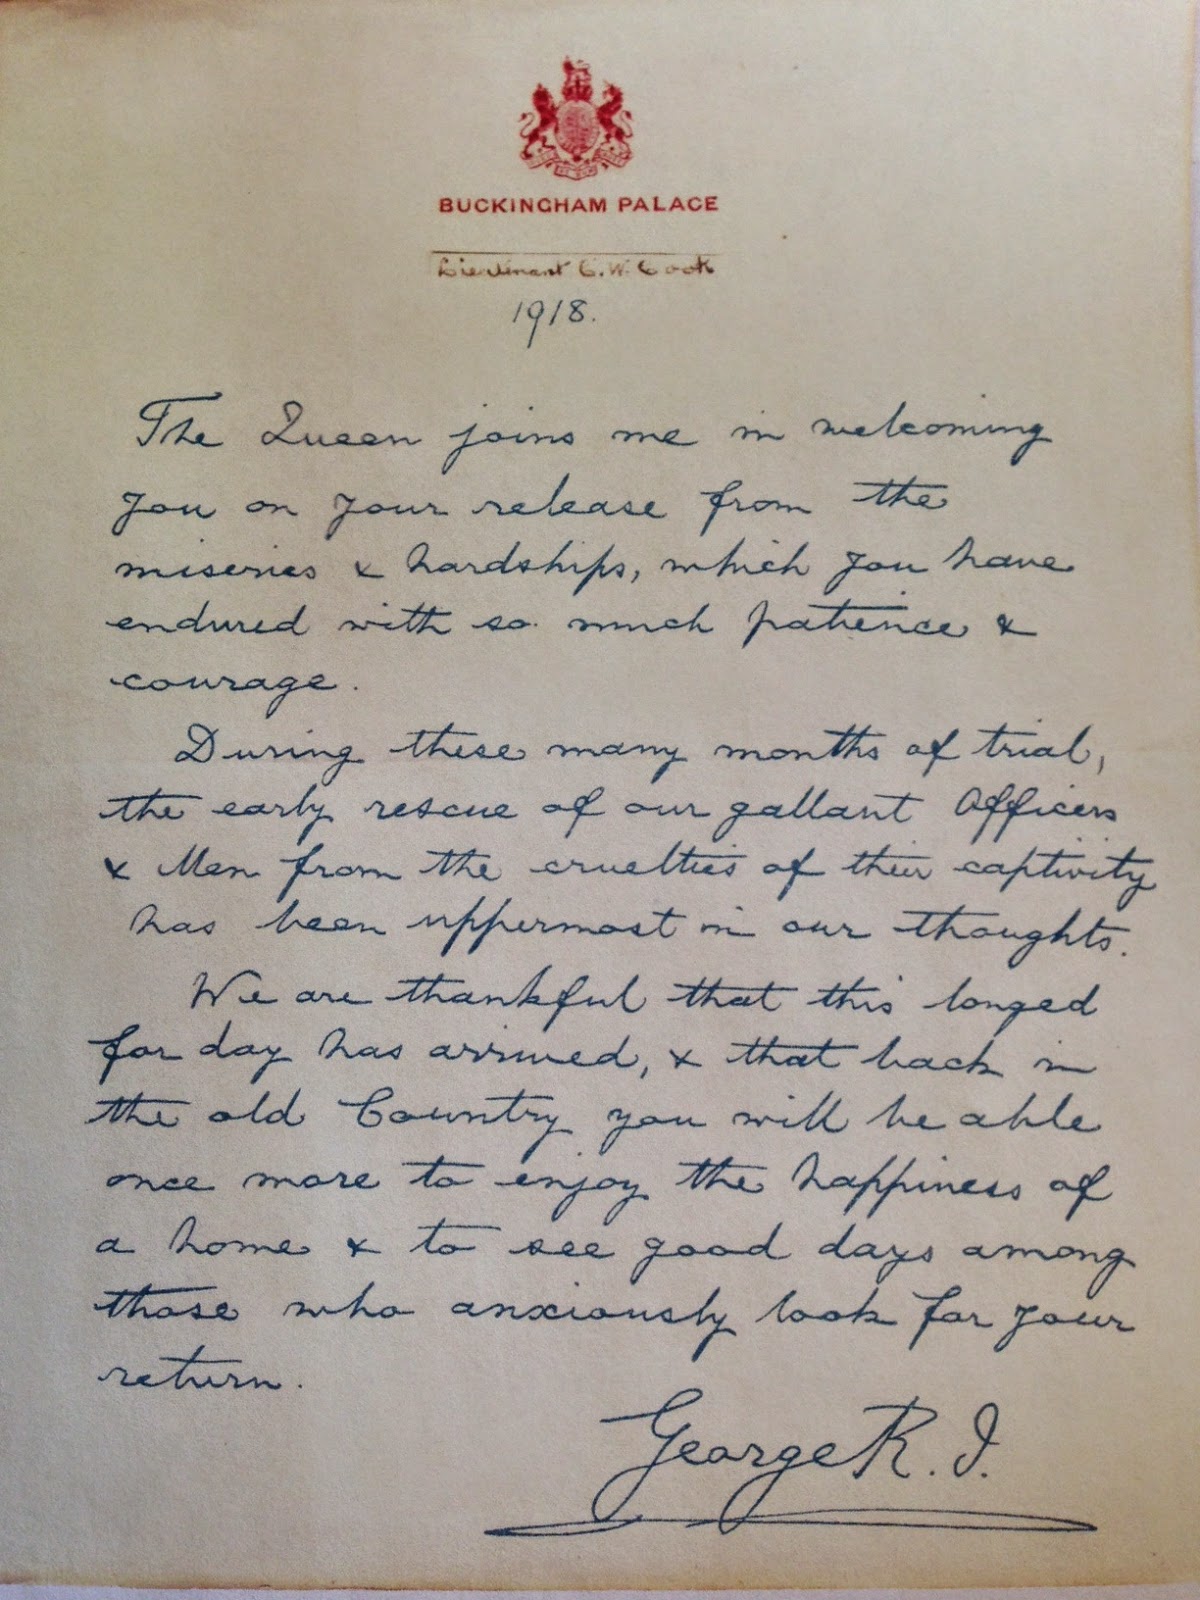 BUCKINGHAM PALACE
Lieutenant C. W. Cook
1918.
The Queen joins me in welcoming
you on your release from the
miseries & hardships, which you have
endured with so much patience &
courage.
During these many months of trial,
the early rescue of our gallant Officers
& Men from the cruelties of their captivity
has been uppermost in our thoughts.
We are thankful that this longed
for day has arrived, & that back in
the old Country you will be able
once more to enjoy the happiness of
a home & to see good days among
those who anxiously look for your
return.
George R. I.